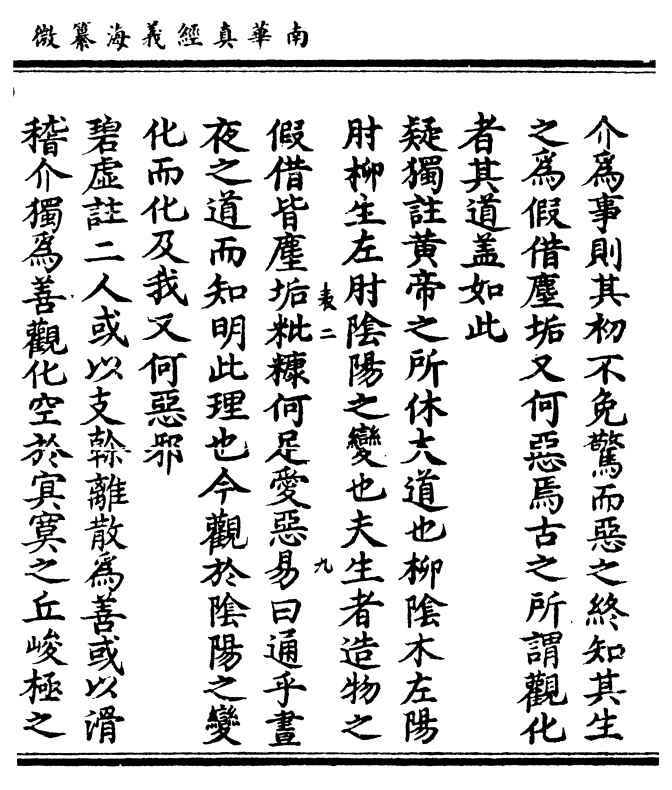 南華真經義海纂微
介為事則其初不免驚而惡之終知其生
之為假借塵垢又何惡焉古之所謂觀化
者其道盖如此
疑獨註黃帝之所休大道也柳陰木左陽
肘柳生左肘陰陽之變也夫生者造物之
表二
九
假借皆塵垢粃糠何足愛惡易曰通乎晝
夜之道而知明此理也今觀於陰陽之變
化而化及我又何惡邪
碧虛註二人或以支幹離散為善或以滑
稽介獨為善觀化空於冥寞之丘峻極之